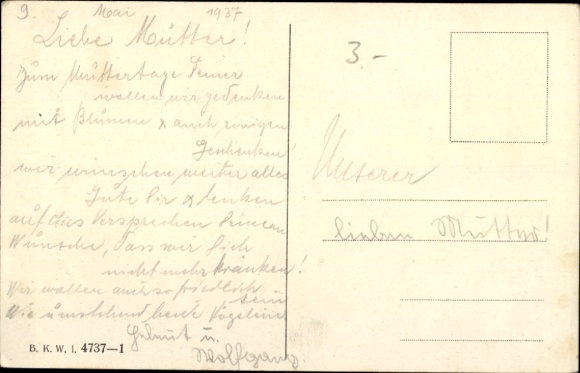 9. Mai 1937
Liebe Mutter!
Zum Muttertage Deiner
wollen wir gedenken
mit Blumen & auch einigen
Geschenken!
wir wünschen weiter alles
Gute Dir & denken
auf das Versprechen Deinem
Wunsche, dass wir Dich
nicht mehr kränken!
Wir wollen auch so friedlich
sein
Wie umstehend beide Vögelein
Helmut u.
Wolfgang.
B. K. W. I. 4737—1
3.-
Unserer
lieben Mutter!